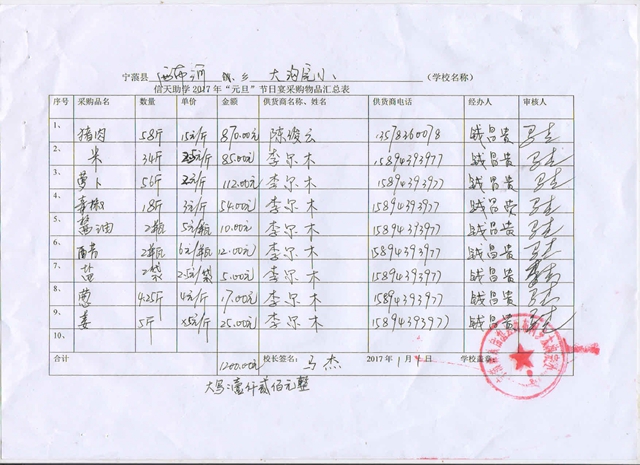 宁蒗县 西布河 乡 大沟尾小 （学校名称）
信天助学2017年“元旦”节日宴采购物品汇总表
序号 采购品名 数量 单价 金额 供货商名称、姓名 供货商电话 经办人 审核人
1、 猪肉 58斤 15元/斤 870.00元 陈俊云 13578360078 钱昌贵 马杰
2、 米 34斤 2.5元/斤 85.00元 李尔木 15894393977 钱昌贵 马杰
3、 萝卜 56斤 2元/斤 112.00元 李尔木 15894393977 钱昌贵 马杰
4、 辛椒 18斤 3元/斤 54.00元 李尔木 15894393977 钱昌贵 马杰
5、 酱油 2瓶 5元/瓶 10.00元 李尔木 15894393977 钱昌贵 马杰
6、 醋 2瓶 6元/瓶 12.00元 李尔木 15894393977 钱昌贵 马杰
7、 盐 2袋 2.5元/袋 5.00元 李尔木 15894393977 钱昌贵 马杰
8、 葱 4.25斤 4元/斤 17.00元 李尔木 15894393977 钱昌贵 马杰
9、 姜 5斤 5元/斤 25.00元 李尔木 15894393977 钱昌贵 马杰
10、
合计 1200.00元 校长签名： 马杰 2017年1月 日 学校盖章
大写：壹仟贰佰元整